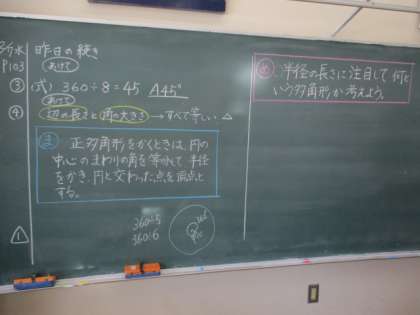 P103
昨日の続き
③ (式) 360÷8=45 A45°
④ 辺の長さと角の大きさ→すべて等しい
ま 正多角形をかくときは、円の
中心のまわりの角を等分して半径
をかき、円と交わった点を頂点と
する。
360÷5
360÷6
1
め 半径の長さに注目して何と
いう多角形か考えよう。